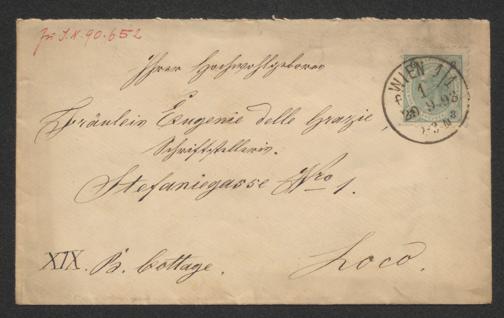 Zu I.N. 90.652
Ihrer Hochwohlgeboren
Fräulein Eugenie delle Grazie,
Schriftstellerin.
Stefaniegasse Nro 1.
XIX. B. Cottage.
Loco.
WIEN 1/1
1
20 9 93